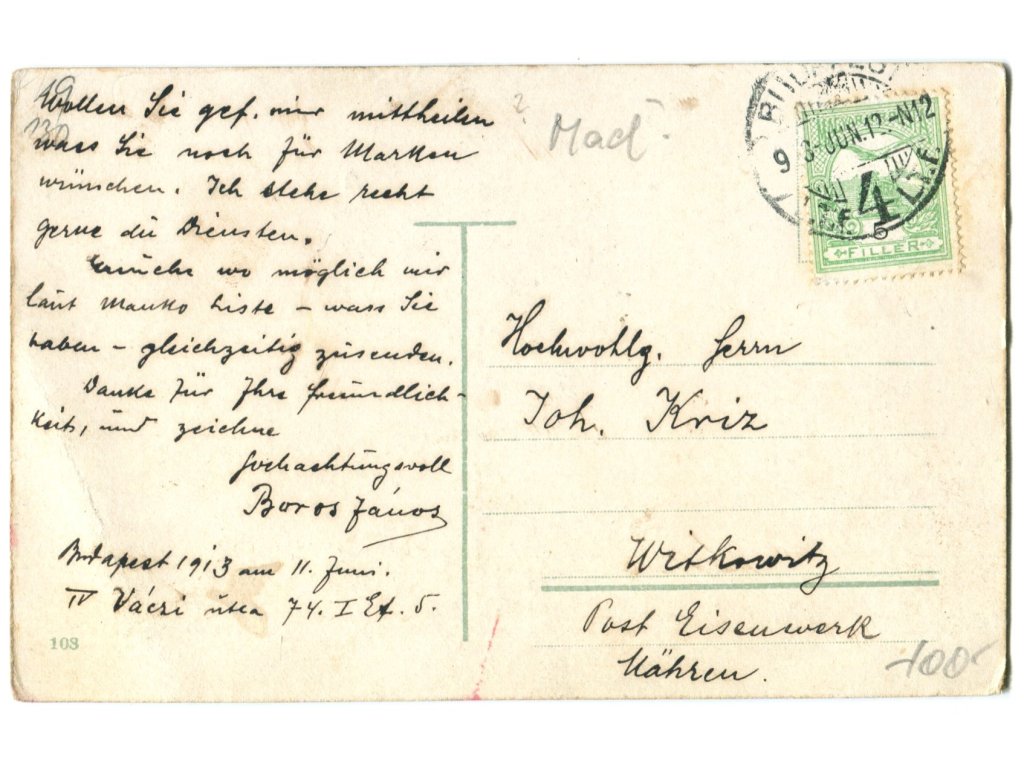 Wollen Sie gef. mir mittheilen
wass Sie noch für Marken
wünschen. Ich stehe recht
gerne zu Diensten.
Ersuche wo möglich mir
laut Manko Liste – wass Sie
haben – gleichzeitig zusenden.
Danke für Ihre freundlich-
keit, und zeichne
Hochachtungsvoll
Boros János
Budapest 1913 am 11. Juni.
IV Váczi utca 74. I Et. 5.
103
?
Mad
BUDAPEST
9
JUN. 13 -N12
4
FILLER
Hochwohlg. Herrn
Joh. Kriz
Witkowitz
Post Eisenwerk
Mähren.
100-